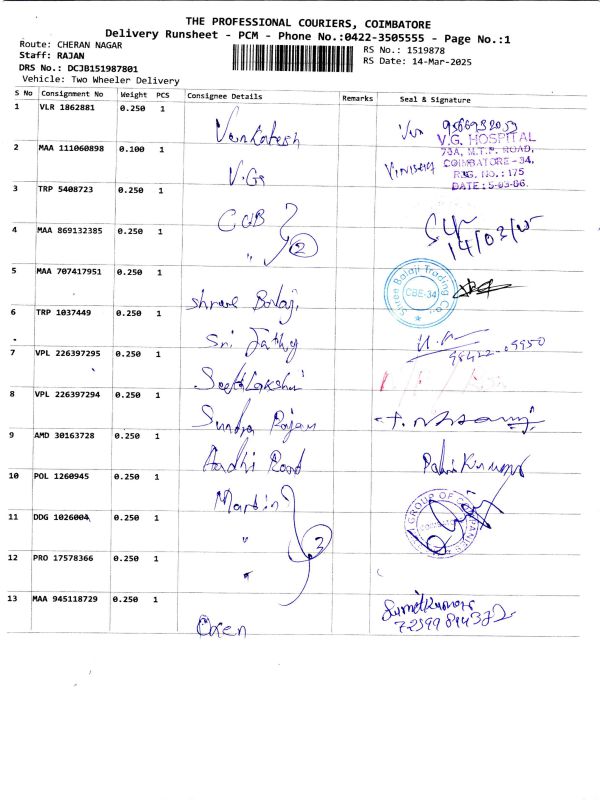 THE PROFESSIONAL COURIERS, COIMBATORE
Delivery Runsheet - PCM - Phone No.:0422-3505555 - Page No.:1
Route: CHERAN NAGAR
RS No.: 1519878
Staff: RAJAN
RS Date: 14-Mar-2025
DRS No.: DCJB151987801
Vehicle: Two Wheeler Delivery
S No Consignment No Weight PCS Consignee Details Remarks Seal & Signature
1 VLR 1862881 0.250 1 Venkatesh
V.G. HOSPITAL
73A, M.T.P. ROAD,
COIMBATORE - 34.
REG. NO.: 175
DATE: 5-03-06.
2 MAA 111060898 0.100 1 V.Gs
3 TRP 5408723 0.250 1 CUB
4 MAA 869132385 0.250 1 " 2 14/03/25
5 MAA 707417951 0.250 1 Shree Balaji
Shree Balaji Trading Co.
CBE-34
6 TRP 1037449 0.250 1 Sri
7 VPL 226397295 0.250 1 Seethalakshmi
8 VPL 226397294 0.250 1 Sundra Rajan
9 AMD 30163728 0.250 1 Aadhi Road
10 POL 1260945 0.250 1 Martin
GROUP OF COMPANIES
11 DDG 1026004 0.250 1 " 3
12 PRO 17578366 0.250 1 "
13 MAA 945118729 0.250 1 Oxen